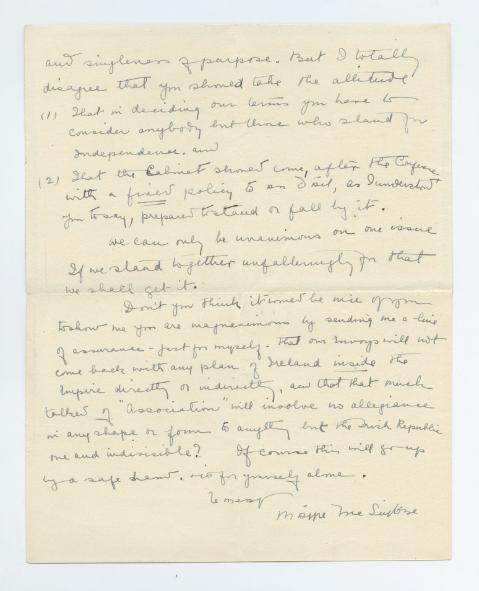 and singleness of purpose. But I totally
disagree that you should take the attitude
(1) That in deciding our terms you have to
consider anybody but those who stand for
Independence. and
(2) That the Cabinet should come, after the Conference
with a fixed policy to an Dáil, as I understood
you to say, prepared to stand or fall by it.
We can only be unanimous on one issue
If we stand together unfalteringly for that
we shall get it.
Don't you think it would be nice of you
to show me you are magnanimous by sending me a line
of assurance - just for myself - that our Envoys will not
come back with any plan of Ireland inside the
Empire directly or indirectly, and that that much
talked of "Association" will involve no allegiance
in any shape or form to anything but the Irish Republic
one and indivisible? Of course this will go up
by a safe hand. is for yourself alone.